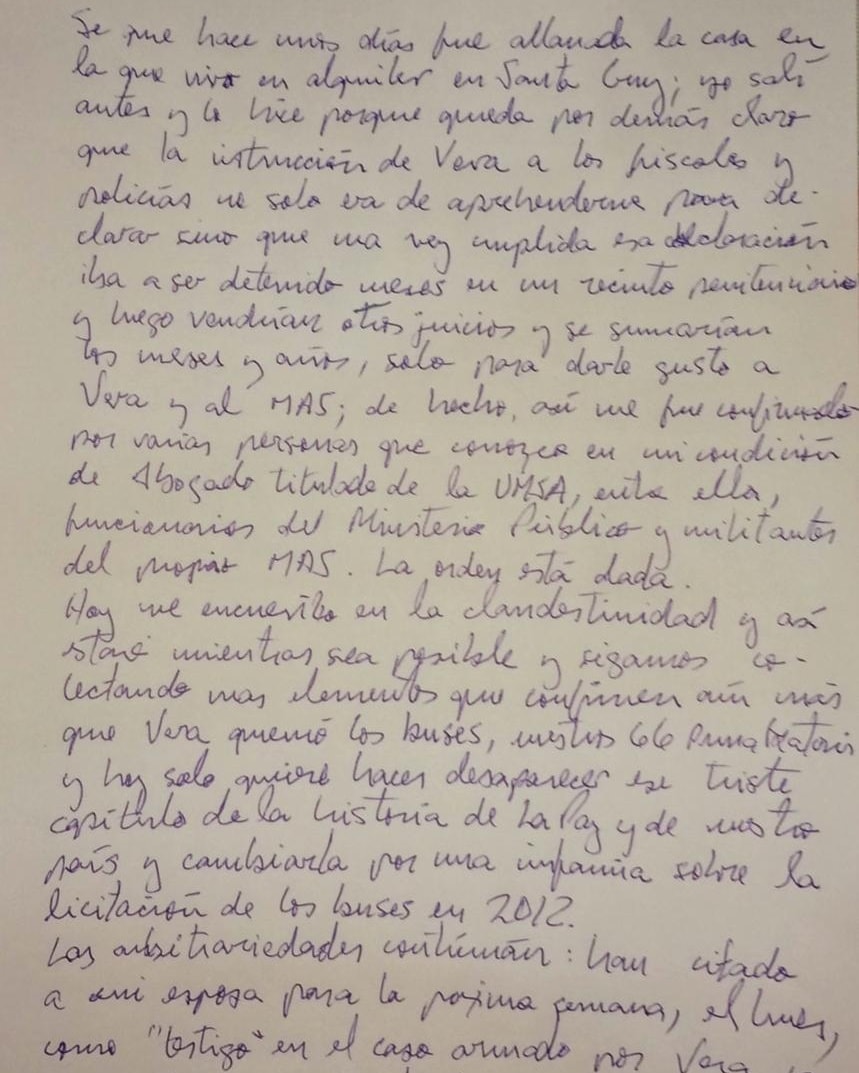 Se que hace unos días fue allanada la casa en
la que vivo en alquiler en Santa Cruz; yo salí
antes y lo hice porque queda por demás claro
que la instrucción de Vera a los fiscales y
policías no solo era de aprehenderme para de-
clarar sino que una vez cumplida esa declaración
iba a ser detenido meses en un recinto penitenciario
y luego vendrían otros juicios y se sumarían
los meses y años, solo para darle gusto a
Vera y al MAS; de hecho, así me fue confirmado
por varias personas que conozco en mi condición
de Abogado titulado de la UMSA, entre ellos,
funcionarios del Ministerio Público y militantes
del propio MAS. La orden está dada.
Hoy me encuentro en la clandestinidad y así
estaré mientras sea posible y sigamos co-
lectando mas elementos que confirmen aún más
que Vera quemó los buses, nuestros 66 PumaKataris
y hoy solo quiere hacer desaparecer ese triste
capítulo de la historia de La Paz y de nuestro
país y cambiarla por una infamia sobre la
licitación de los buses en 2012.
Las arbitrariedades continúan: han citado
a mi esposa para la próxima semana, el lunes,
como "testigo" en el caso armado por Vera